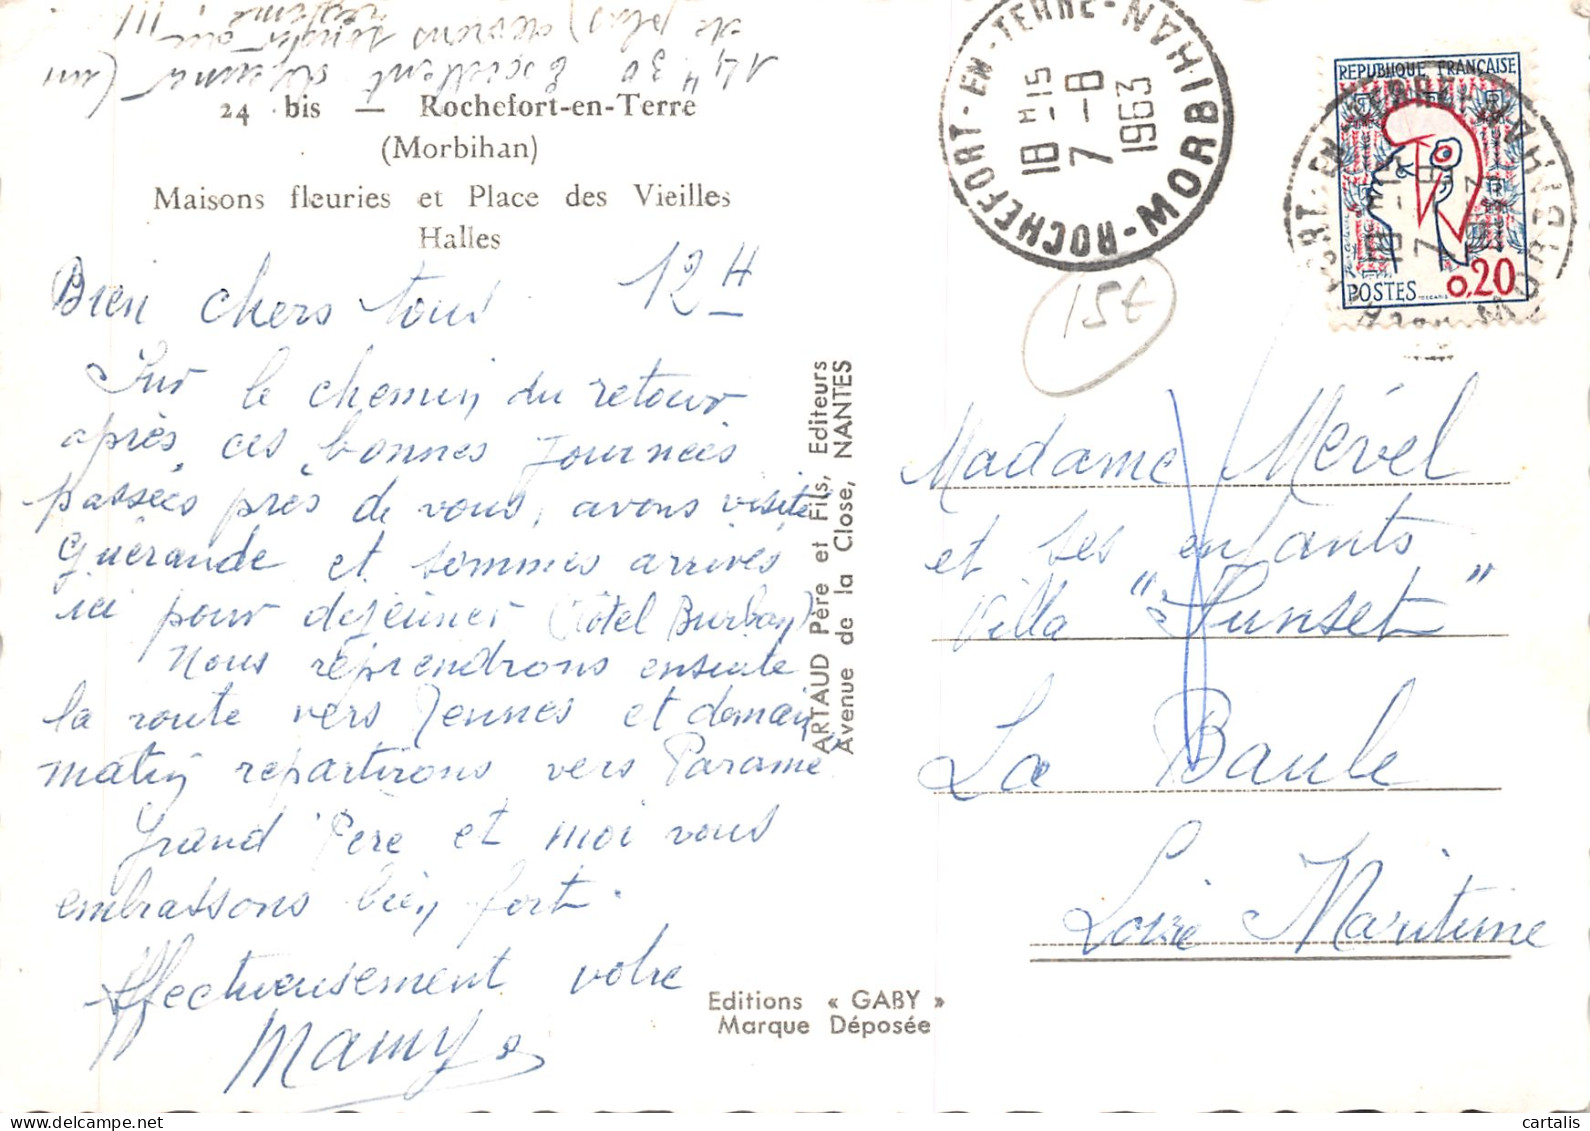 14H 30 Excellent déjeuner (un
de plus) devrons tenir au
régime !!!
24 bis — Rochefort-en-Terre
(Morbihan)
Maisons fleuries et Place des Vieilles
Halles
12H
Bien chers tous
Sur le chemin du retour
après ces bonnes journées
passées près de vous, avons visité
Guérande et sommes arrivés
ici pour déjeuner (Hôtel Burban)
Nous reprendrons ensuite
la route vers Rennes et demain
matin repartirons vers Paramé
Grand Père et moi vous
embrassons bien fort.
Affectueusement votre
Mamy
ARTAUD Père et Fils, Editeurs
Avenue de la Close, NANTES
Editions « GABY »
Marque Déposée
ROCHEFORT-EN-TERRE - MORBIHAN
18H15
7-8
1963
REPUBLIQUE FRANÇAISE
0,20
POSTES
157
Madame Mével
et ses enfants
Villa "Sunset"
La Baule
Loire Maritime
cartalis.com